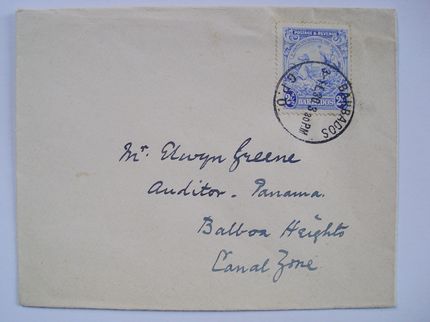 POSTAGE & REVENUE
BARBADOS
BARBADOS
G.P.O.
Mr. Elwyn Greene
Auditor - Panama.
Balboa Heights
Canal Zone